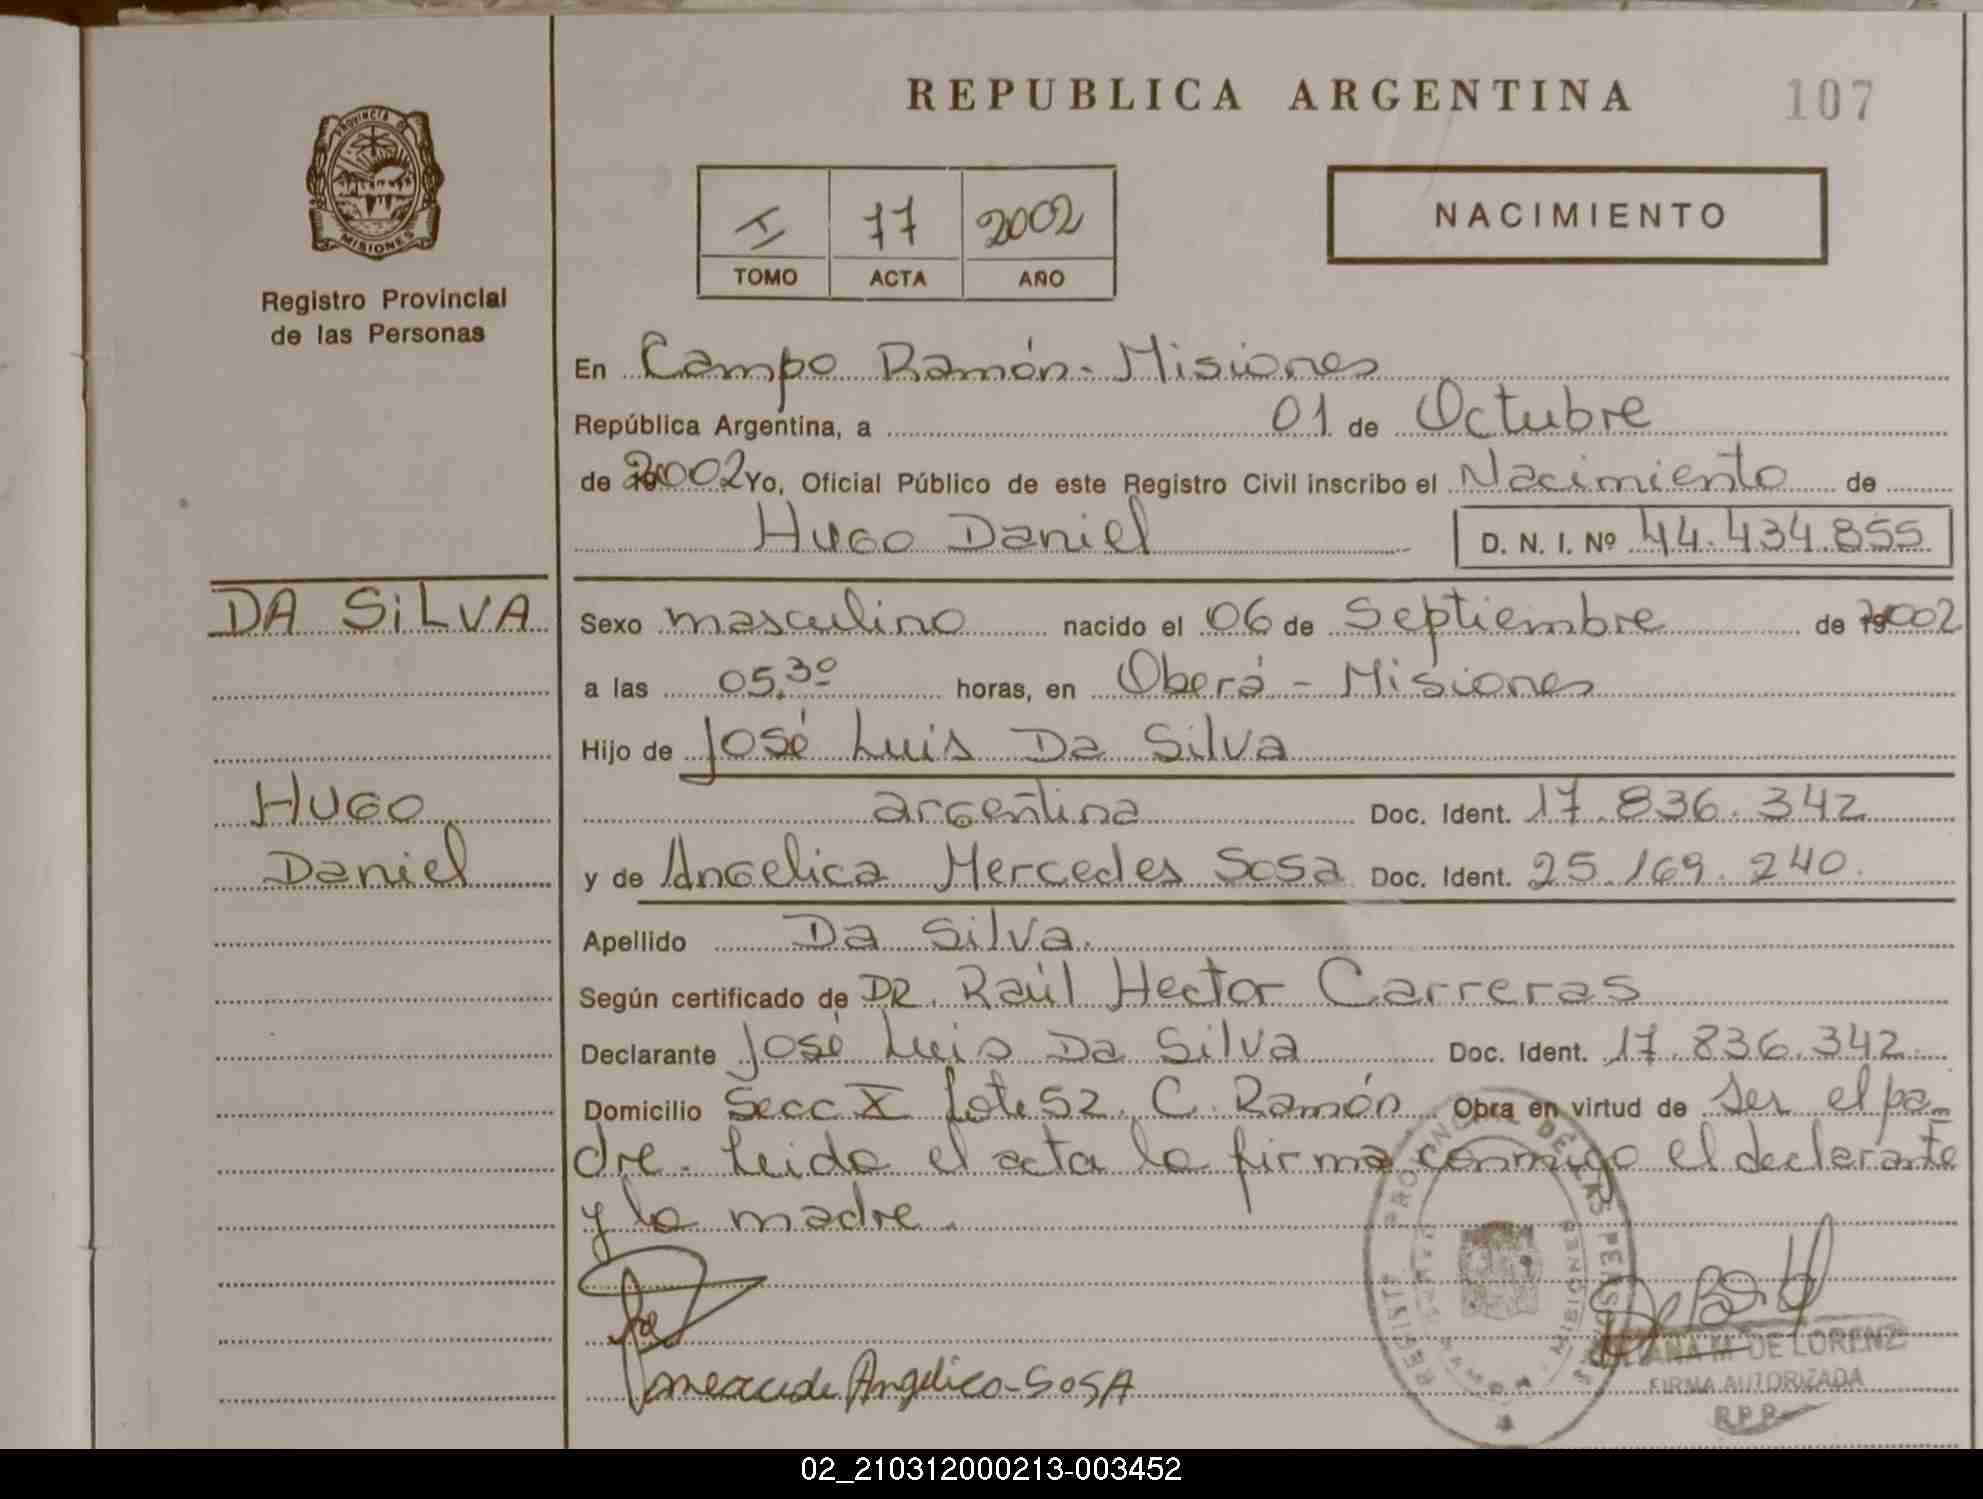 REPUBLICA ARGENTINA
107
PROVINCIA DE
MISIONES
Registro Provincial
de las Personas
I 77 2002
TOMO ACTA AÑO
NACIMIENTO
En Campo Ramón - Misiones
República Argentina, a 01 de Octubre
de 2002 Yo, Oficial Público de este Registro Civil inscribo el Nacimiento de
Hugo Daniel D. N. I. Nº 44.434.855
DA SILVA
Hugo
Daniel
Sexo masculino nacido el 06 de Septiembre de 2002
a las 05,30 horas, en Oberá - Misiones
Hijo de José Luis Da Silva
argentina Doc. Ident. 17.836.342
y de Angelica Mercedes Sosa Doc. Ident. 25.169.240.
Apellido Da Silva.
Según certificado de DR. Raúl Hector Carreras
Declarante José Luis Da Silva Doc. Ident. 17.836.342.
Domicilio Secc X lote 52. C. Ramón Obra en virtud de ser el pa-
dre. Leida el acta la firma conmigo el declarante
y la madre.
Angelica - SOSA
DE LORENZ
FIRMA AUTORIZADA
R.P.P.
02_210312000213-003452